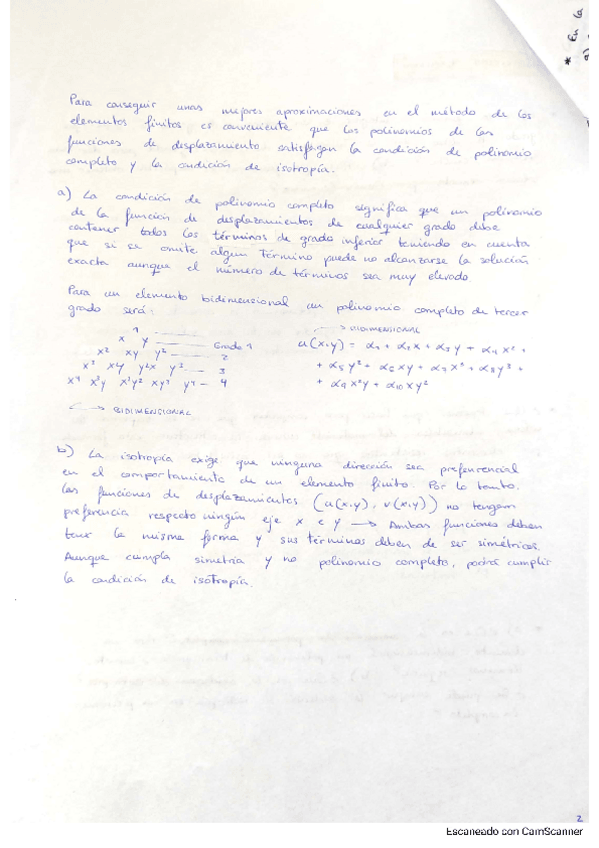 * En la
a)
Para conseguir unas mejores aproximaciones en el método de los
elementos finitos es conveniente que los polinomios de las
funciones de desplazamiento satisfagan la condición de polinomio
completo y la condición de isotropía.
a) La condición de polinomio completo significa que un polinomio
de la función de desplazamientos de cualquier grado debe
contener todos los términos de grado inferior teniendo en cuenta
que si se omite algun término puede no alcanzarse la solución
exacta aunque el número de términos sea muy elevado.
Para un elemento bidimensional un polinomio completo de tercer
grado será:
1
x y Grado 1
x² xy y² 2
x³ x²y y²x y³ 3
x⁴ x³y x²y² xy³ y⁴ 4
↳ BIDIMENSIONAL
→ BIDIMENSIONAL
u(x,y) = α₁ + α₂x + α₃y + α₄x² +
+ α₅y² + α₆xy + α₇x³ + α₈y³ +
+ α₉x²y + α₁₀xy²
b) La isotropía exige que ninguna dirección sea preferencial
en el comportamiento de un elemento finito. Por lo tanto,
las funciones de desplazamientos (u(x,y), v(x,y)) no tengan
preferencia respecto ningún eje x e y → Ambas funciones deben
tener la misma forma y sus términos deben de ser simétricos.
Aunque cumpla simetría y no polinomio completo, podrá cumplir
la condición de isotropía.
2
Escaneado con CamScanner